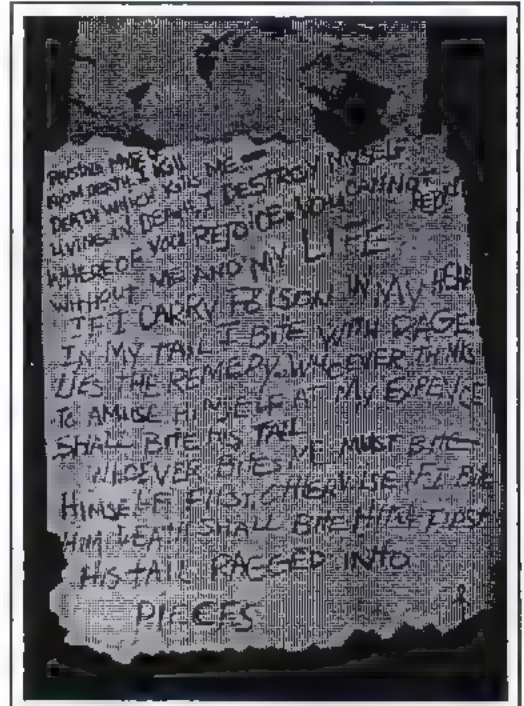 RAISING ME
FROM DEATH I KILL ME
DEATH WHICH KILLS
LIVING IN DEATH I DESTROY MYSELF
WHEREOF YOU REJOICE YOU CANNOT REJOICE
WITHOUT ME AND MY LIFE
IF I CARRY POISON IN MY HEAD
IN MY TAIL I BITE WITH RAGE
LIES THE REMEDY WHOEVER THINKS
TO AMUSE HIMSELF AT MY EXPENCE
SHALL BITE HIS TAIL
WHOEVER BITES ME MUST BITE
HIMSELF FIRST OTHERWISE IF I BITE
HIM DEATH SHALL BITE HIM FIRST
HIS TAIL RAGGED INTO
PIECES